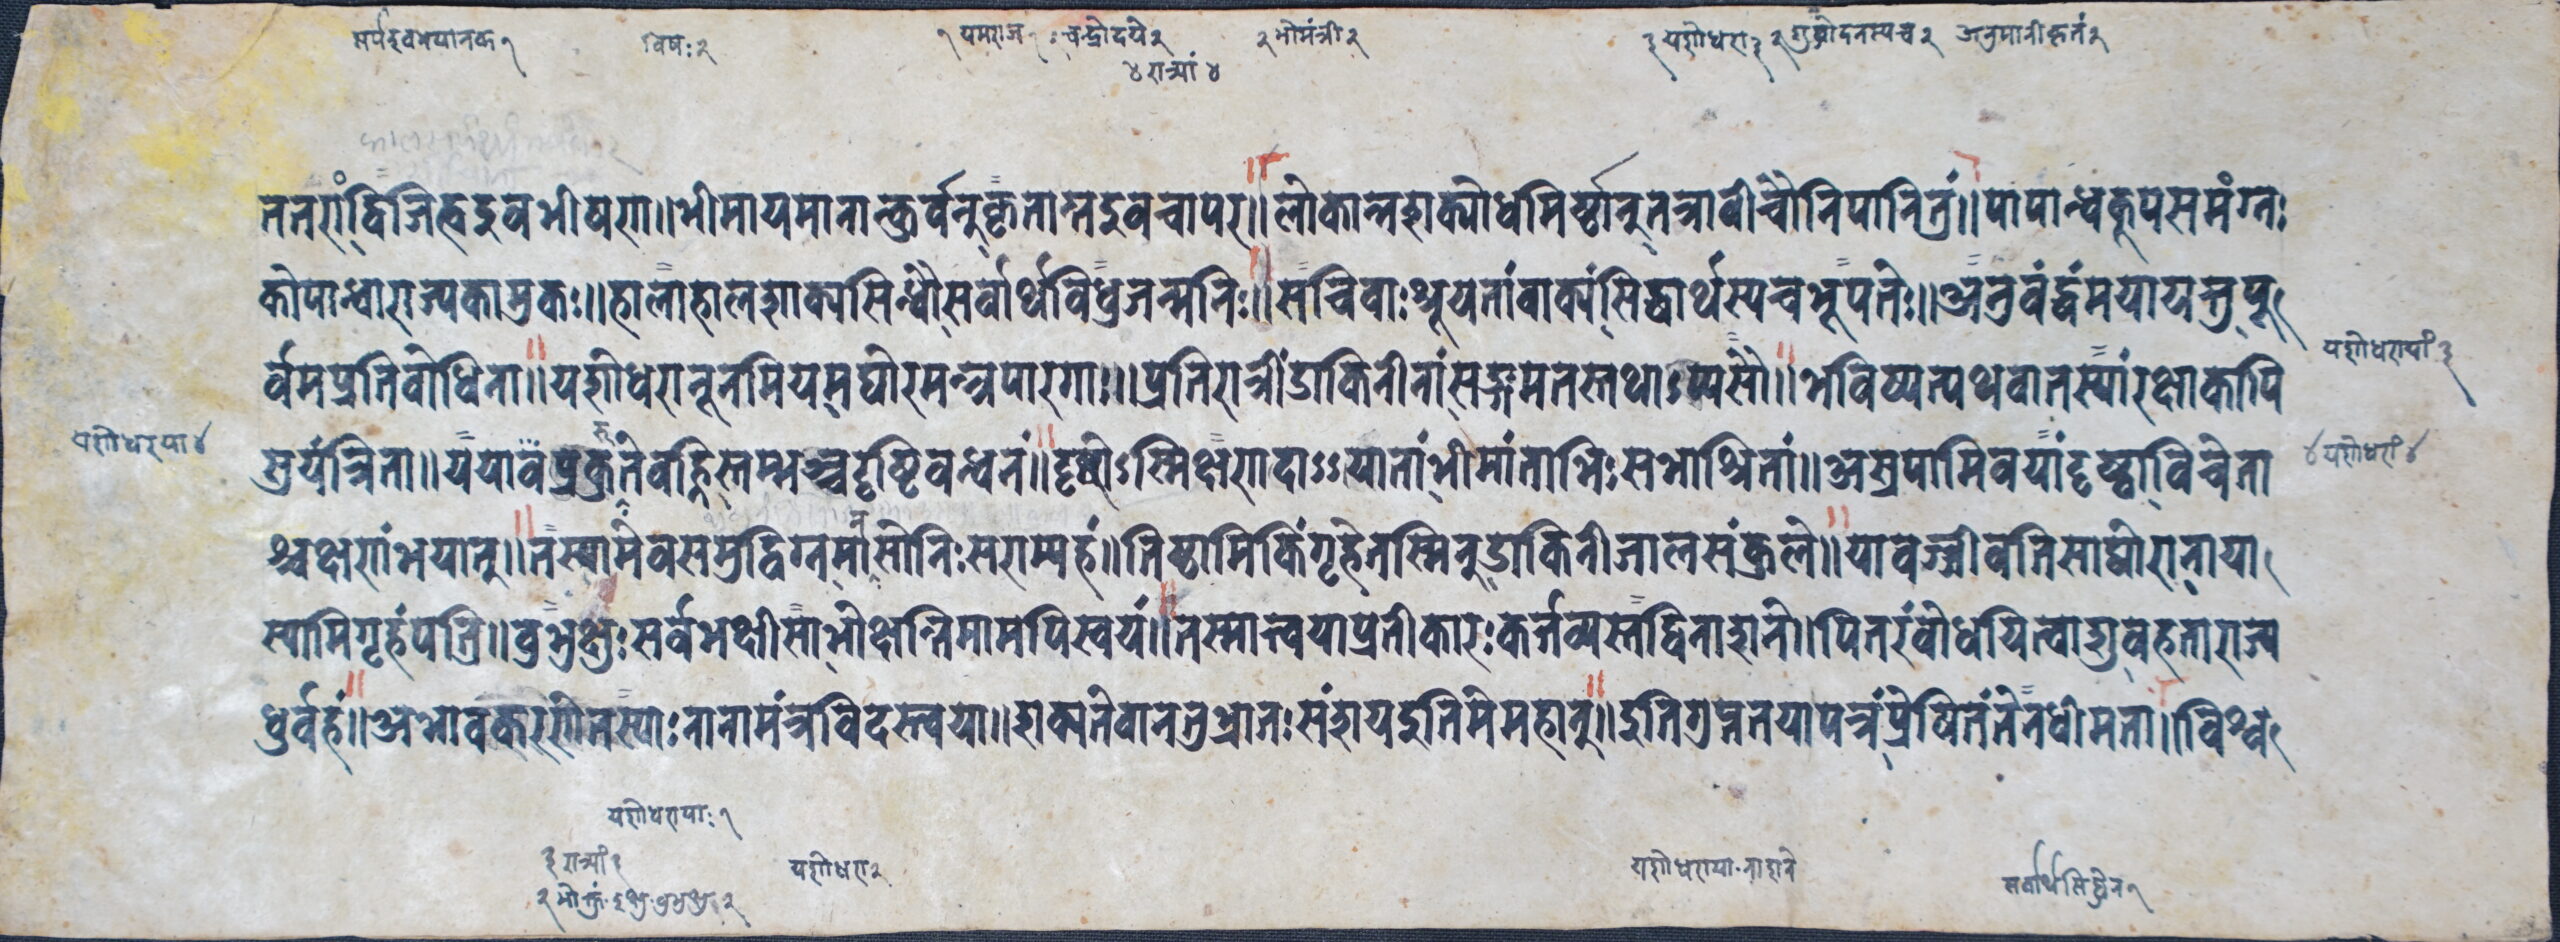 सर्पइवभयानक १ विषः २ १ यमराज १ः चन्द्रोदये २ २ भोमंत्री २ ३ यशोधरा ३ २ शुद्धोदनस्यच २ अनुमानीकृतं २
४ रात्र्यां ४
ततरांद्विजिह्वइवभीषण॥भीमायमानान्कुर्वन्नुत्कृताग्नइवचापर॥लोकान्मशाक्योधमिर्ष्ठान्तत्रावीचौनिपातितुं॥पापान्धकूपसमंग्नः
कोपान्धोराज्यकामुकः॥हालाहालशाक्यसिन्धौसर्वार्थविधुजन्मनिः॥सचिवाःश्रूयतांवाक्यंसिद्धार्थस्यचभूपतेः॥अनुवंद्धंमयायत्तुपू
र्वमप्रतिवोधिना॥यशोधरानूनमियम्घोरमन्त्रपारगाः॥प्रतिरात्रींडाकिनीनांसङ्गमेतस्तथाऽप्यसौ॥भविष्यत्यथवातस्यांरक्षाकापि
यशोधरायां ३
सुयंत्रिता॥ययावंप्रकुरुतेवह्निस्तम्भञ्चदृष्टिवन्धनं॥दृष्टोऽस्मिक्षणादाऽऽयातांभीमांताभिःसभाश्रितां॥अस्रपामिवयांदृष्ट्वाविचेता
यशोधरया ४
४ यशोधरां ४
श्चक्षणांभयात्॥तस्यामेवसमुद्विग्नमानसोनिःसराम्यहं॥तिष्ठामिकिंगृहेतस्मिन्डाकिनीजालसंकुले॥यावज्जीवतिसाघोरानाया
स्यामिगृहंपति॥वुभुक्षुःसर्वभक्षीसाभोक्षन्तिमामपिस्वयं॥तस्मात्त्वयाप्रतीकारःकर्त्तव्यस्तद्विनाशने॥पितरंवोधयित्वाशुवहतांराज्य
धुर्वहं॥अभावकरणेतस्याःनानामंत्रविदस्त्वया॥शक्यतेवानतुभ्रातःसंशयइतिमेमहान्॥इतिगुप्ततयापत्रंप्रेषितंतेनधीमता॥विश्व
यशोधरायाः १
३ रात्र्यां ३ यशोधरा २ यशोधराया नाशने सर्वार्थसिद्धेन १